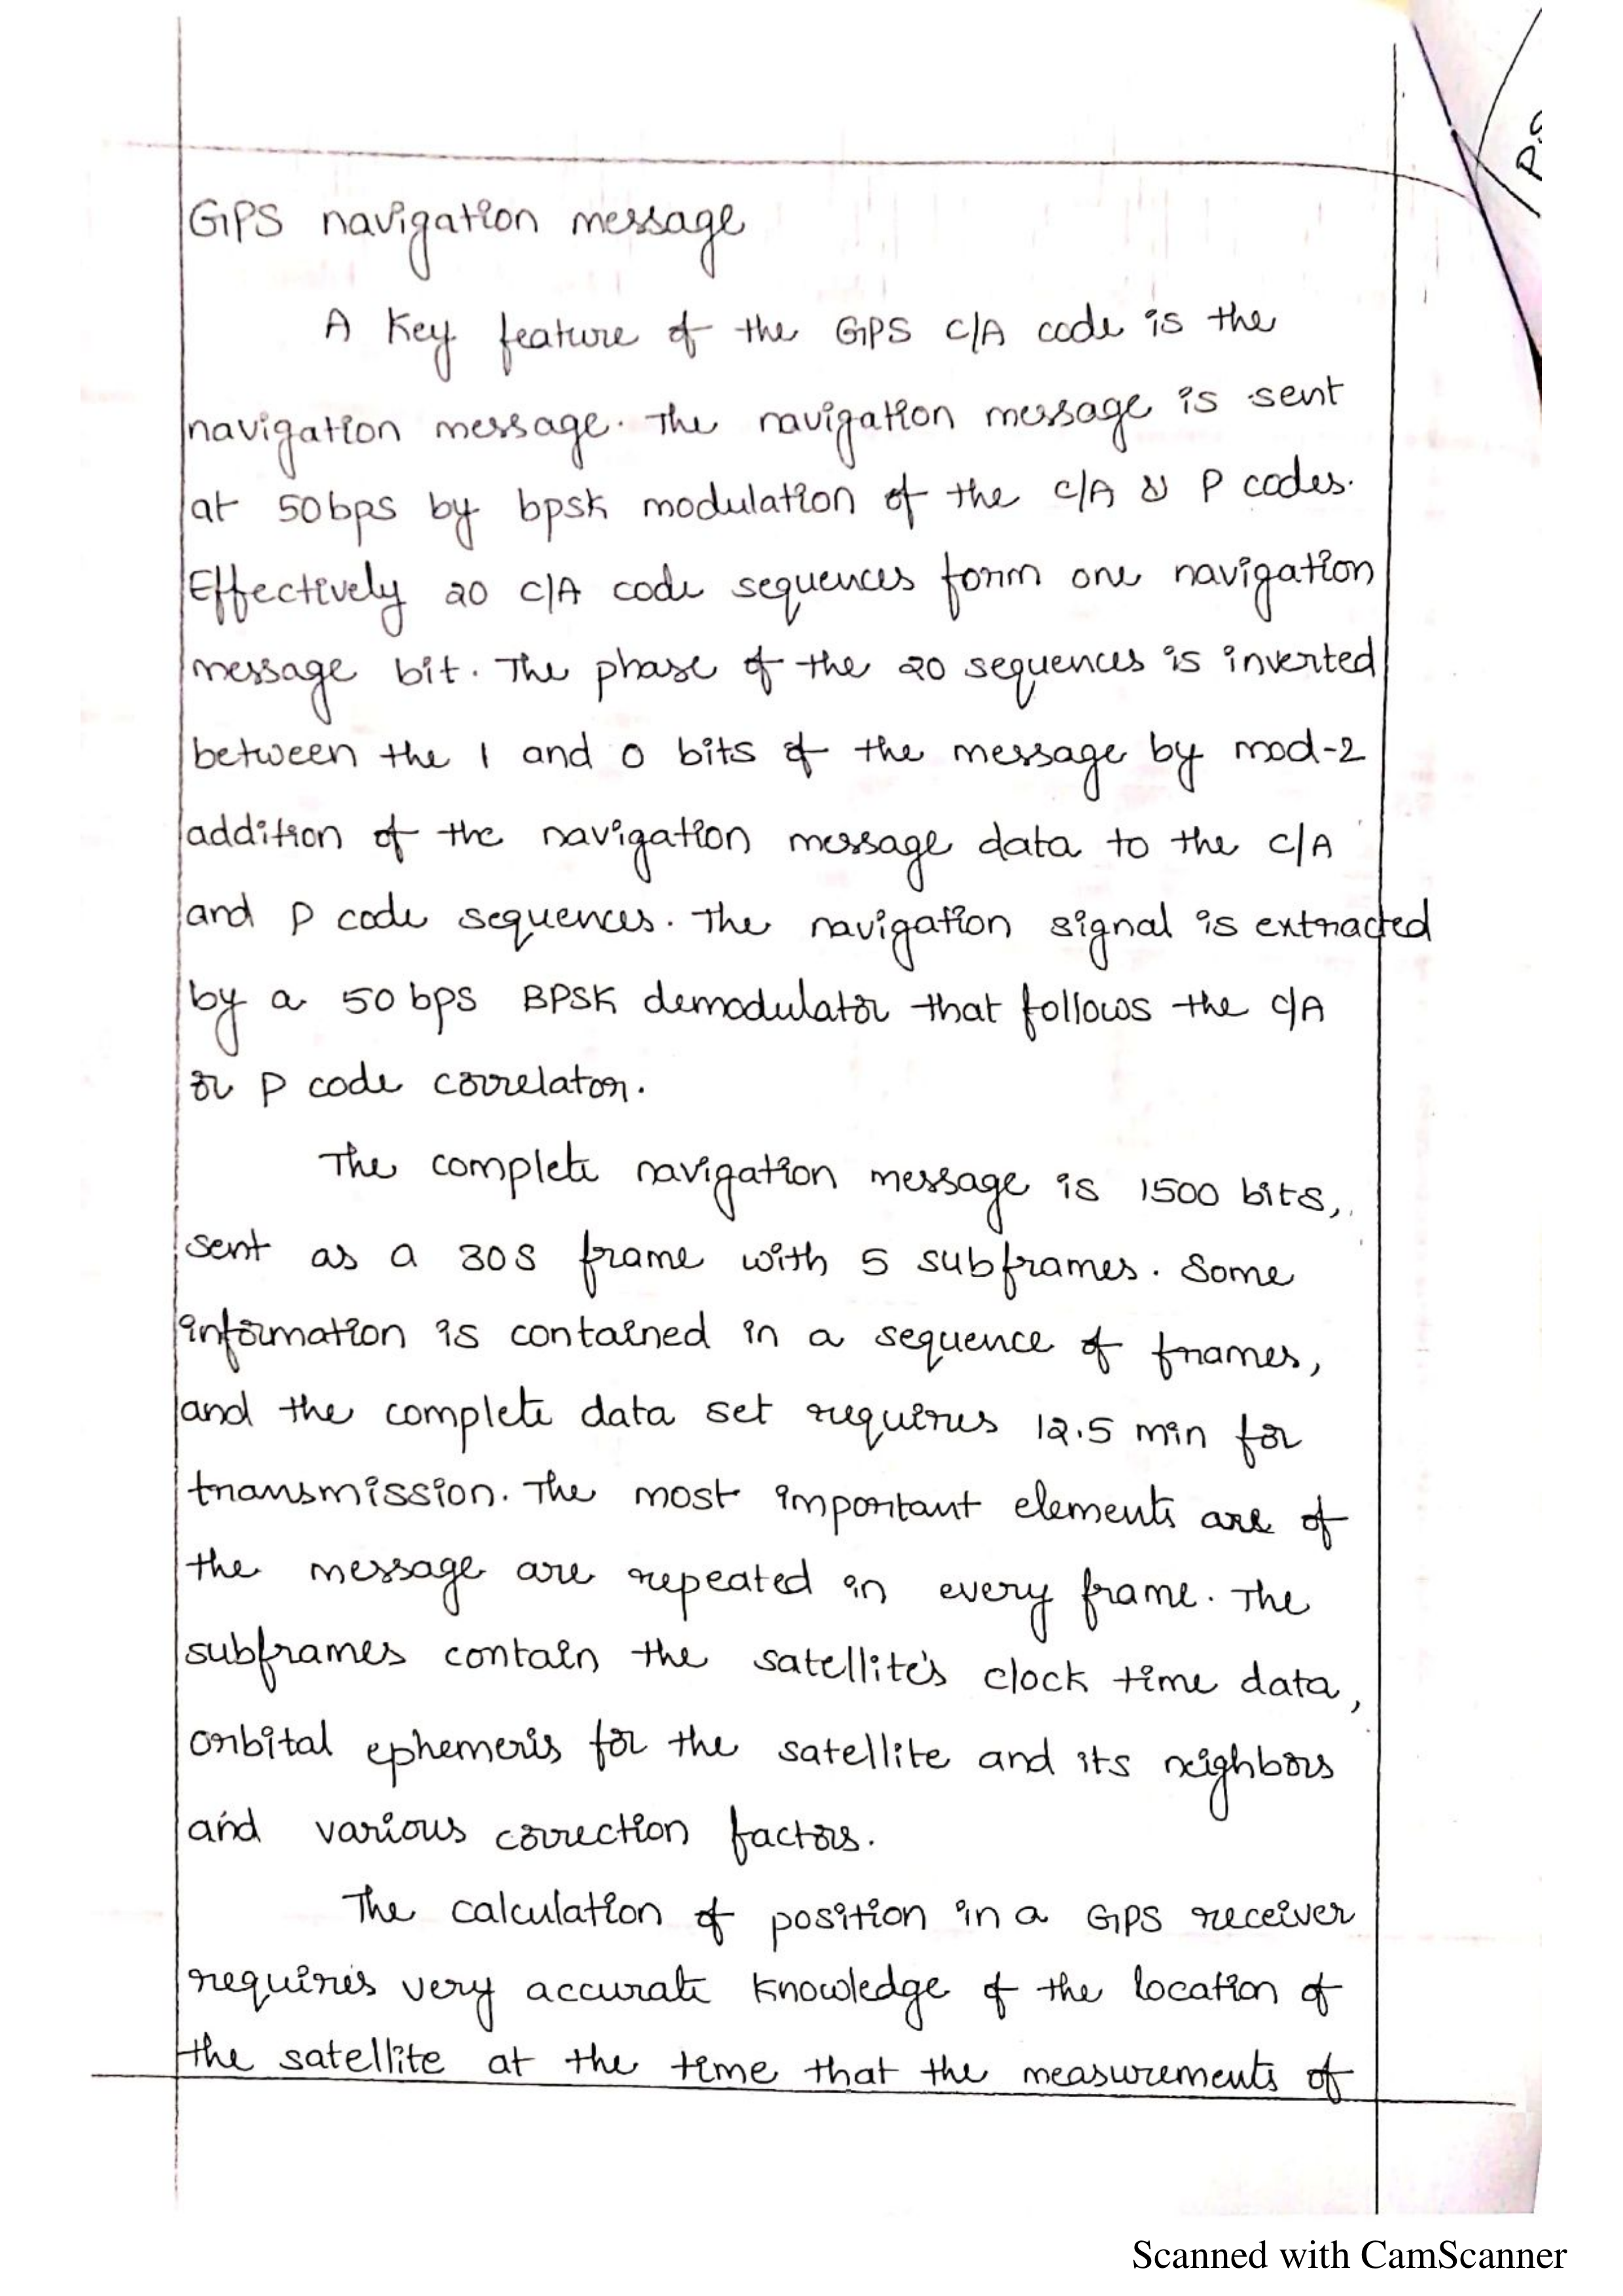 GPS navigation message
A Key feature of the GPS C/A code is the
navigation message. The navigation message is sent
at 50bps by bpsk modulation of the C/A & P codes.
Effectively 20 C/A code sequences form one navigation
message bit. The phase of the 20 sequences is inverted
between the 1 and 0 bits of the message by mod-2
addition of the navigation message data to the C/A
and P code sequences. The navigation signal is extracted
by a 50 bps BPSK demodulator that follows the C/A
or P code correlator.
The complete navigation message is 1500 bits,
sent as a 30S frame with 5 subframes. Some
information is contained in a sequence of frames,
and the complete data set requires 12.5 min for
transmission. The most important elements are of
the message are repeated in every frame. The
subframes contain the satellite's clock time data,
orbital ephemeris for the satellite and its neighbors
and various correction factors.
The calculation of position in a GPS receiver
requires very accurate knowledge of the location of
the satellite at the time that the measurements of
Scanned with CamScanner